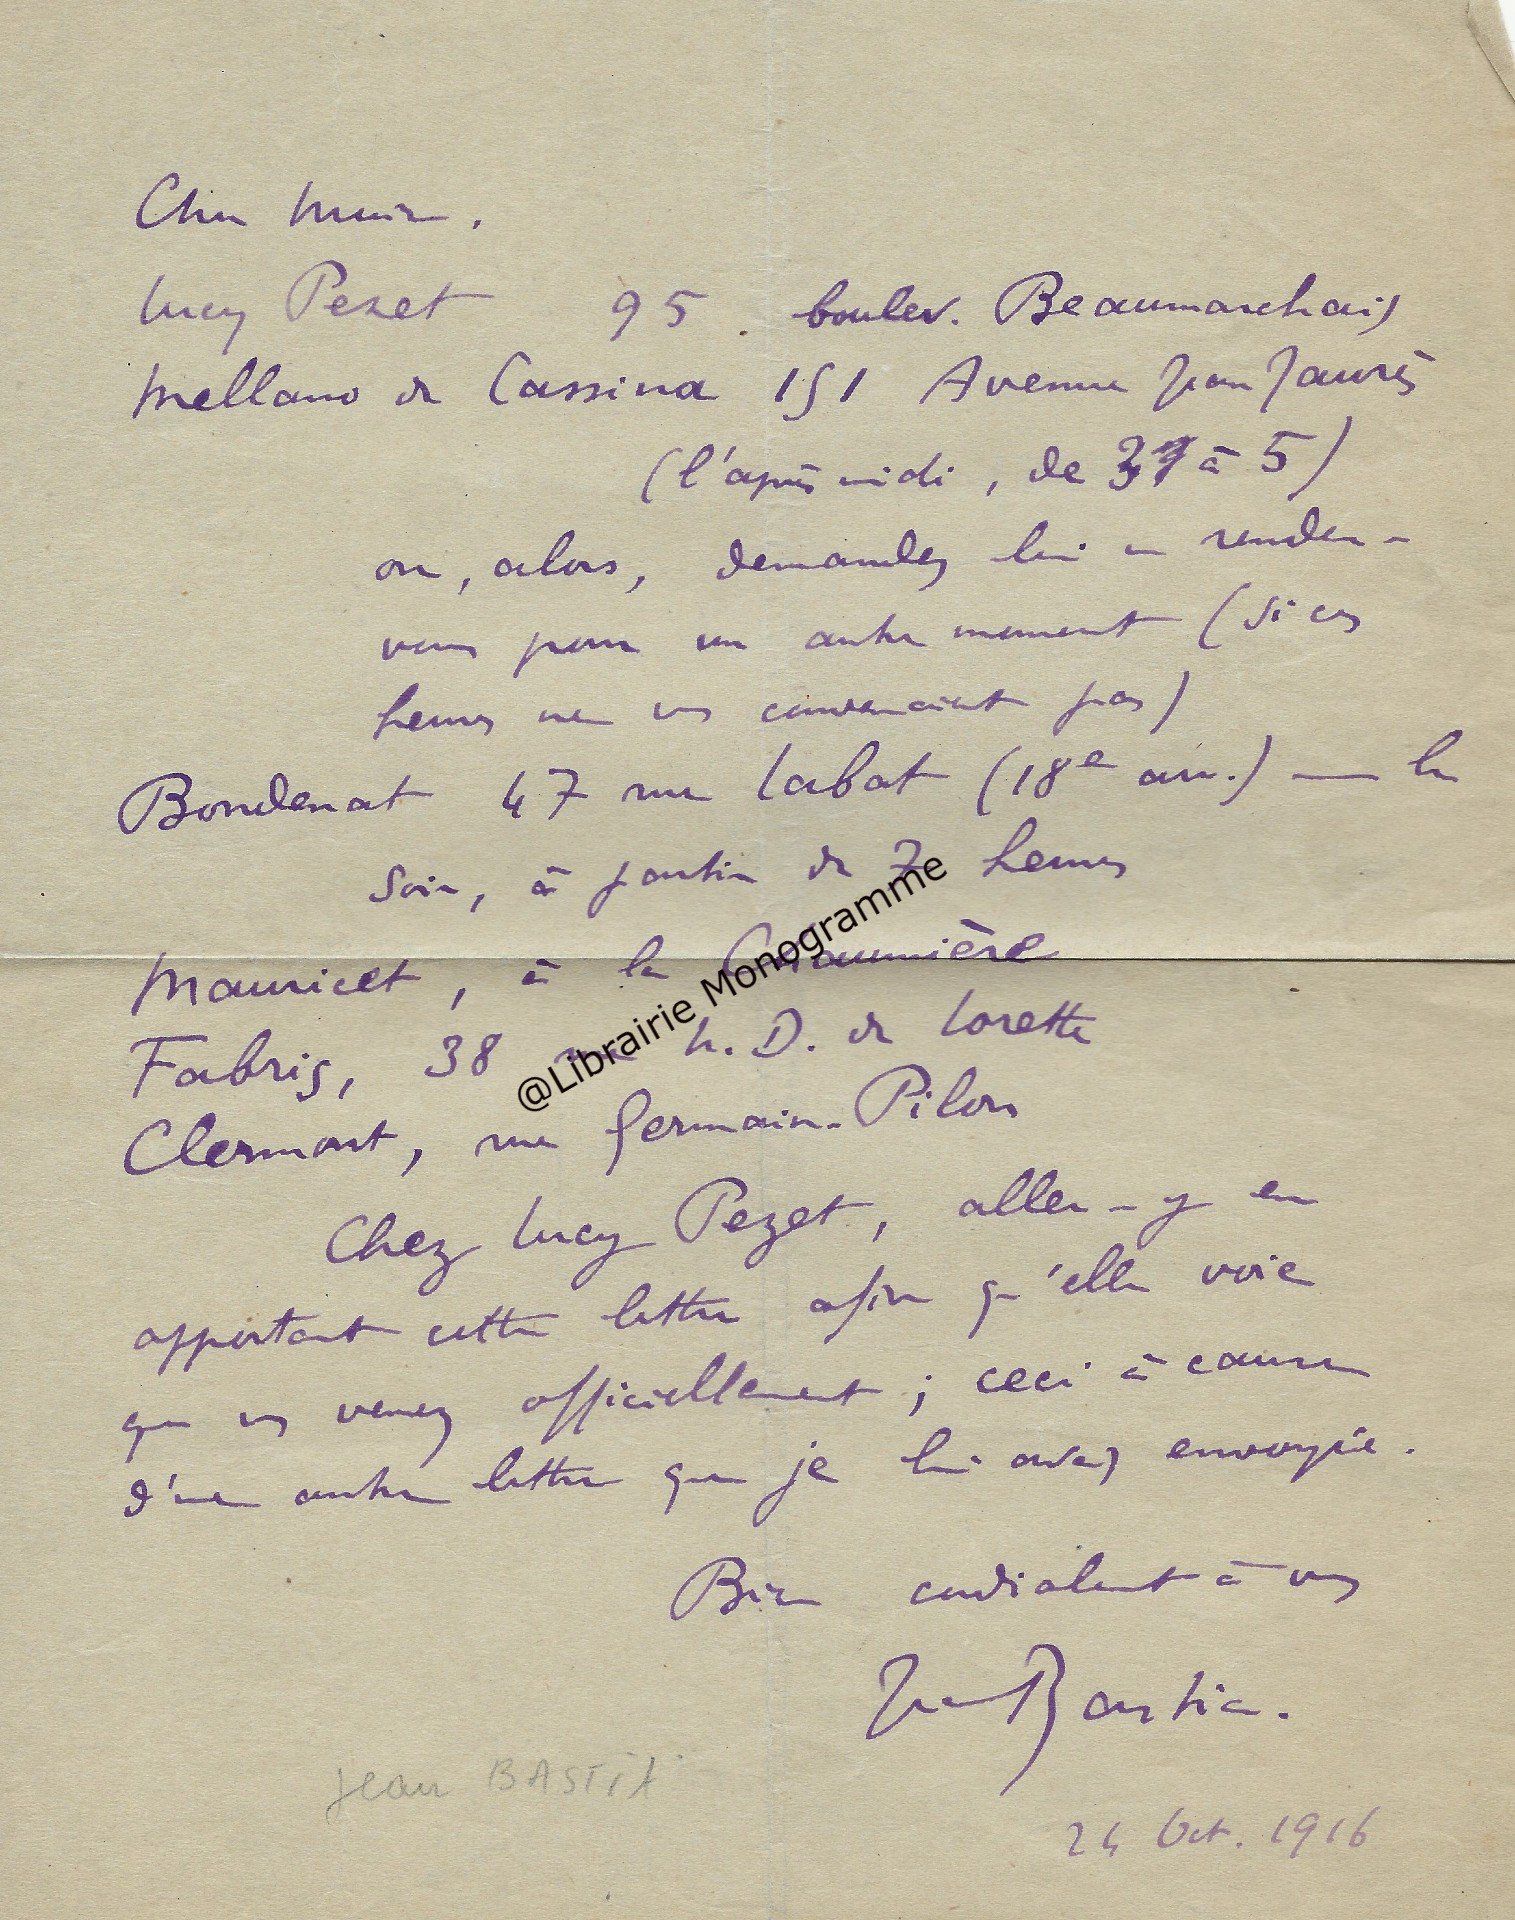 Cher
Lucy Pezet 95 boulev. Beaumarchais
Mellano de Cassina 151 Avenue Jean Jaurès
(l'après midi, de 3 à 5)
ou, alors, demandez lui un rendez-
vous pour un autre moment (si ces
heures ne vs convenaient pas)
Bondenat 47 rue Labat (18e arr.) — le
soir, à partir de 7 heures
Mauricet, à la Chaumière
Fabris, 38 rue N. D. de Lorette
Clermont, rue Germain-Pilon
Chez Lucy Pezet, allez-y en
apportant cette lettre afin qu'elle voie
que vs venez officiellement ; ceci à cause
d'une autre lettre que je lui avais envoyée.
Bien cordialement à vous
Jean Bastia.
Jean BASTIA
24 Oct. 1916
@Librairie Monogramme